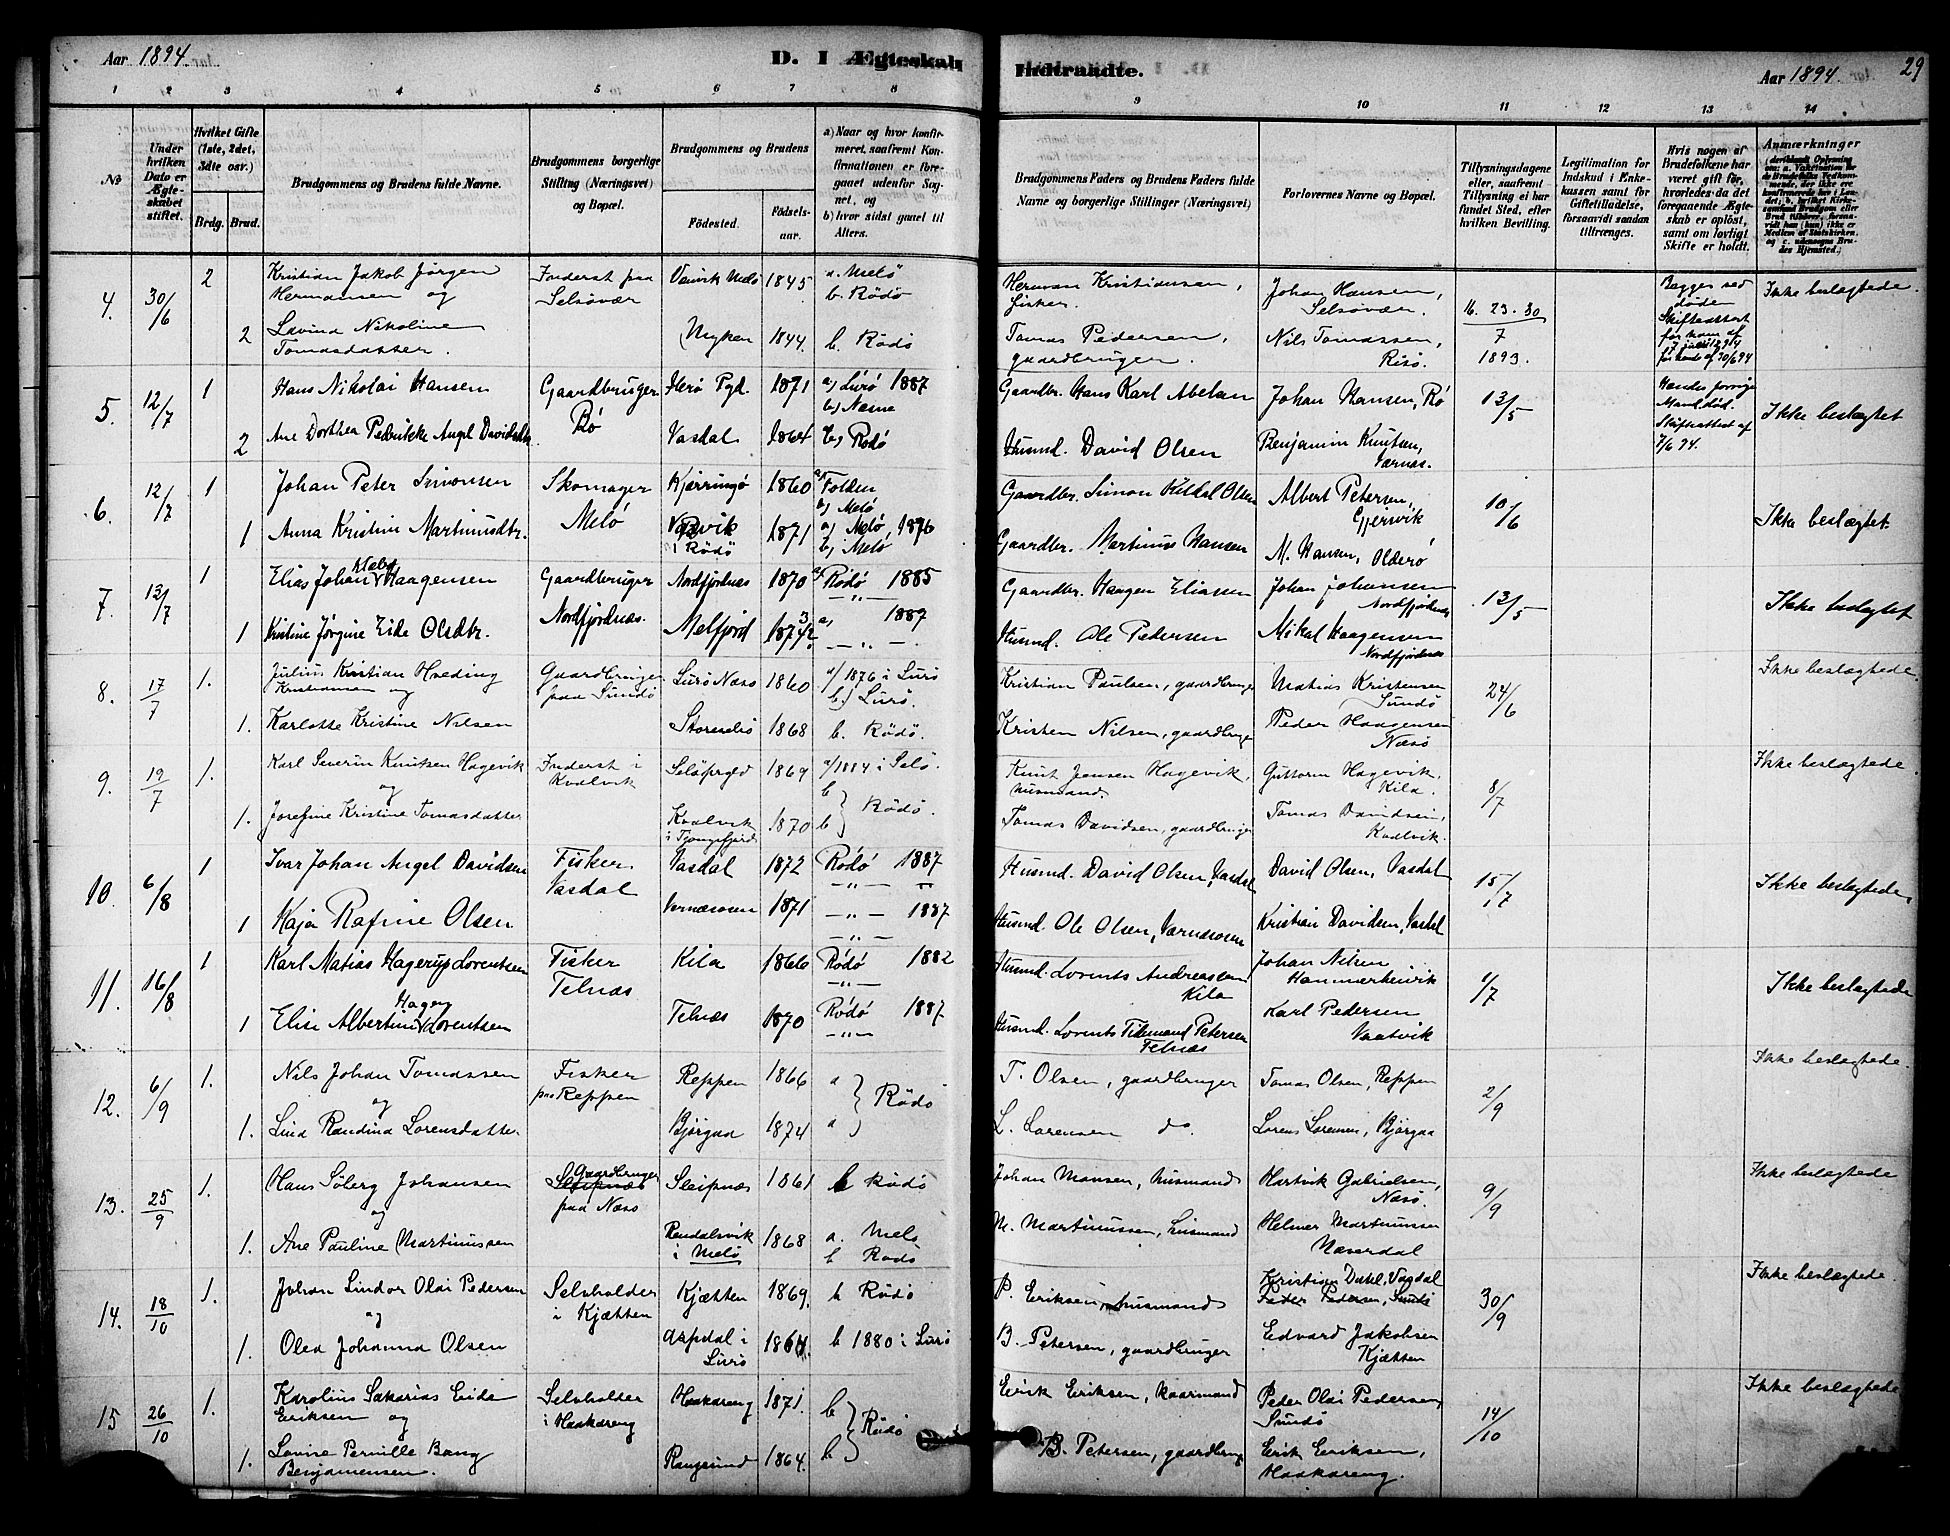 Aar 1894.
D. I Ægteskab
Indtraadte.
Aar 1894.
29
1 2 3 4 5 6 7 8 9 10 11 12 13 14
No
Under hvilken Dato er Ægteskabet stiftet.
Hvilket Gifte (1ste, 2det, 3dte osv.)
Brdg. Brud.
Brudgommens og Brudens fulde Navne.
Brudgommens borgerlige Stilling (Næringsvei) og Bopæl.
Brudgommens og Brudens
Fødested.
Fødselsaar.
a) Naar og hvor konfirmeret, saafremt Konfirmationen er foregaaet udenfor Sognet, og
b) hvor sidst gaaet til Alters.
Brudgommens Faders og Brudens Faders fulde Navne og borgerlige Stillinger (Næringsvei)
Forlovernes Navne og Bopæl.
Tillysningsdagene eller, saafremt Tillysning ei har fundet Sted, efter hvilken Bevilling.
Legitimation for Indskud i Enkekassen samt for Giftetilladelse, forsaavidt saadan tiltrænges.
Hvis nogen af Brudefolkene har været gift før, hvorledes da det foregaaende Ægteskab er opløst, samt om lovligt Skifte er holdt.
Anmærkninger
4. 30/6 2 Kristian Jakob Jørgen Hermansen og
Inderst paa Selsøvær
Vanvik Melø 1845 a. Melö b. Rödö
Herman Kristiansen, fisker
Johan Hansen, Selsøvær
16. 23. 30 / 7 1893.
Begges ved døden Skifteattest for ham af 7 juli 1894 for hende af 30/6 94
Ikke beslægtede.
2 Lavina Nikoline Tomasdatter.
Myken 1844. b. Rödö
Tomas Pedersen, gaardbruger.
Nils Tomassen, Risø.
5. 12/7 1 Hans Nikolai Hansen
Gaardbruger Rø
Herø Pgd. 1871 a) Lurø 1887 b) Næsne
Gaardbr. Hans Karl Abelsen
Johan Hansen, Rø
13/5
Hendes forrige Mand død. Skifteattest af 7/6 94.
Ikke beslægtet
2 Ane Dorthea Pedrikke Angel Davidsdtr.
Vasdal 1864 b) Rødø
Husmd. David Olsen
Benjamin Knutsen, Værnæs.
6. 12/7 1 Johan Peter Simonsen
Skomager Melø
Kjerringø 1860 a) Folden b) Melø
Gaardbr. Simon Mikal Olsen
Albert Petersen, Gjersvik
10/6
Ikke beslægtet
1 Anna Kristine Martinusdtr.
i Rødø 1871 a) Melø 1876 b) Melø
Gaardbr. Martinus Hansen
M. Hansen, Olderø
7. 12/7 1 Elias Johan Klæbo Haagensen
Gaardbruger Nordfjordnæs.
Nordfjordnæs 1870 a) Rødø 1885 —"—
Gaardbr. Haagen Eliassen
Johan Johansen Nordfjordnæs
13/5
Ikke beslægtet
1 Kristine Jørgine Eide Olsdtr.
Melfjord a) 1889 —"—
Husmd. Ole Pedersen
Mikal Haagensen Nordfjordnæs
8. 17/7 1. Julius Kristian Hveding Kristiansen og
Gaardbruger paa Sundø
Lurø Næsø 1860 a/ 1876 i Lurø b) Lurø.
Kristian Paulsen, gaardbruger
Matias Kristensen Sundø
24/6
Ikke beslægtede.
1. Karlotte Kristine Nilsen
Storselsö 1868 b. Rödö.
Kristen Nilsen, gaardbruger
Peder Haagensen Næsø
9. 19/7 1. Karl Severin Knutsen Hagevik og
Inderst i Kvalvik
1869 a/1884 i Selø.
Knut Jensen Hagevik, husmand.
Guttorm Hagevik, Kila.
8/7
Ikke beslægtede.
1. Josefine Kristine Tomasdatter
Kvalvik i Tjongsfjord 1870 b } Rödö. b
Tomas Davidsen, gaardbruger
Tomas Davidsen, Kvalvik.
10. 6/8 1 Ivar Johan Angel Davidsen
Fisker Vasdal
Vasdal 1872 Rødø 1887 —"— "
Husmd. David Olsen, Vasdal
David Olsen, Vasdal
15/7
Ikke beslægtede,
1 Kaja Rafine Olsen
Værnæsosen 1871 —"— 1887 —"—
Husmd. Ole Olsen, Værnæsosen
Kristian Davidsen, Vasdal
11. 16/8 1 Karl Matias Hagerup Lorentsen
Fisker Telnæs
Kila 1866 Rødø 1882 —"—
Husmd. Lorents Andreassen Kila
Johan Nilsen Hammerheivik
1/7
Ikke beslægtede
1 Elise Albertine Hagen Lorentsen
Telnæs 1870 Rødø 1887 —"—
Husmd. Lorents Tidemand Petersen Telnæs
Karl Pedersen Vaatvik
12. 6/9 1. Nils Johan Tomassen og
Fisker paa Reppen
Reppen 1866 a } Rödö
T. Olsen, gaardbruger
Tomas Olsen, Reppen
2/9
Ikke beslægtede
1. Lina Randina Lorensdatter
Bjørgaa 1874 a
L. Sorensen do.
Lorens Sorensen, Bjørgaa
13. 25/9 1. Hans Söberg Johansen og
Gaardbruger paa Næsø
Sleipnæs 1861 b Rödö
Johan Monsen, husmand
Hartvik Gabrielsen, Næsø.
9/9
Ikke beslægtede
1. Ane Pauline Martinussen
Rendalsvik i Melö 1868 a. Melö b Rödö
M. Martinussen, husmand
Helmer Martinussen Næverdal
14. 18/10 1. Johan Lindor Olai Pedersen og
Selvholder i Kjætten
Kjætten 1869. b Rödö
P. Eriksen, husmand
Kristian Dahl, Vagdal
Peder Pedersen, Sundö
30/9
Ikke beslægtede.
1. Olea Johanna Olsen
Aspdal i Lurö b 1880 i Lurö
B. Petersen, gaardbruger
Edvard Jakobsen Kjætten
15 26/10 1. Karolius Sakarias Eide Eriksen og
Selvholder i Haakareng
Haakareng 1871. b } Rødø
Eirik Eriksen, kaarmand
Peter Olai Pedersen, Sundö
14/10
Ikke beslægtede
1. Lovise Pernille Bang Benjamensen.
Rangsund 1864. b
B. Petersen, gaardbrug.
Erik Eriksen, Haakareng.